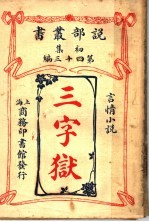 説部叢書
初集
第四十三編
言情小説
三字獄
上海商務印書館發行